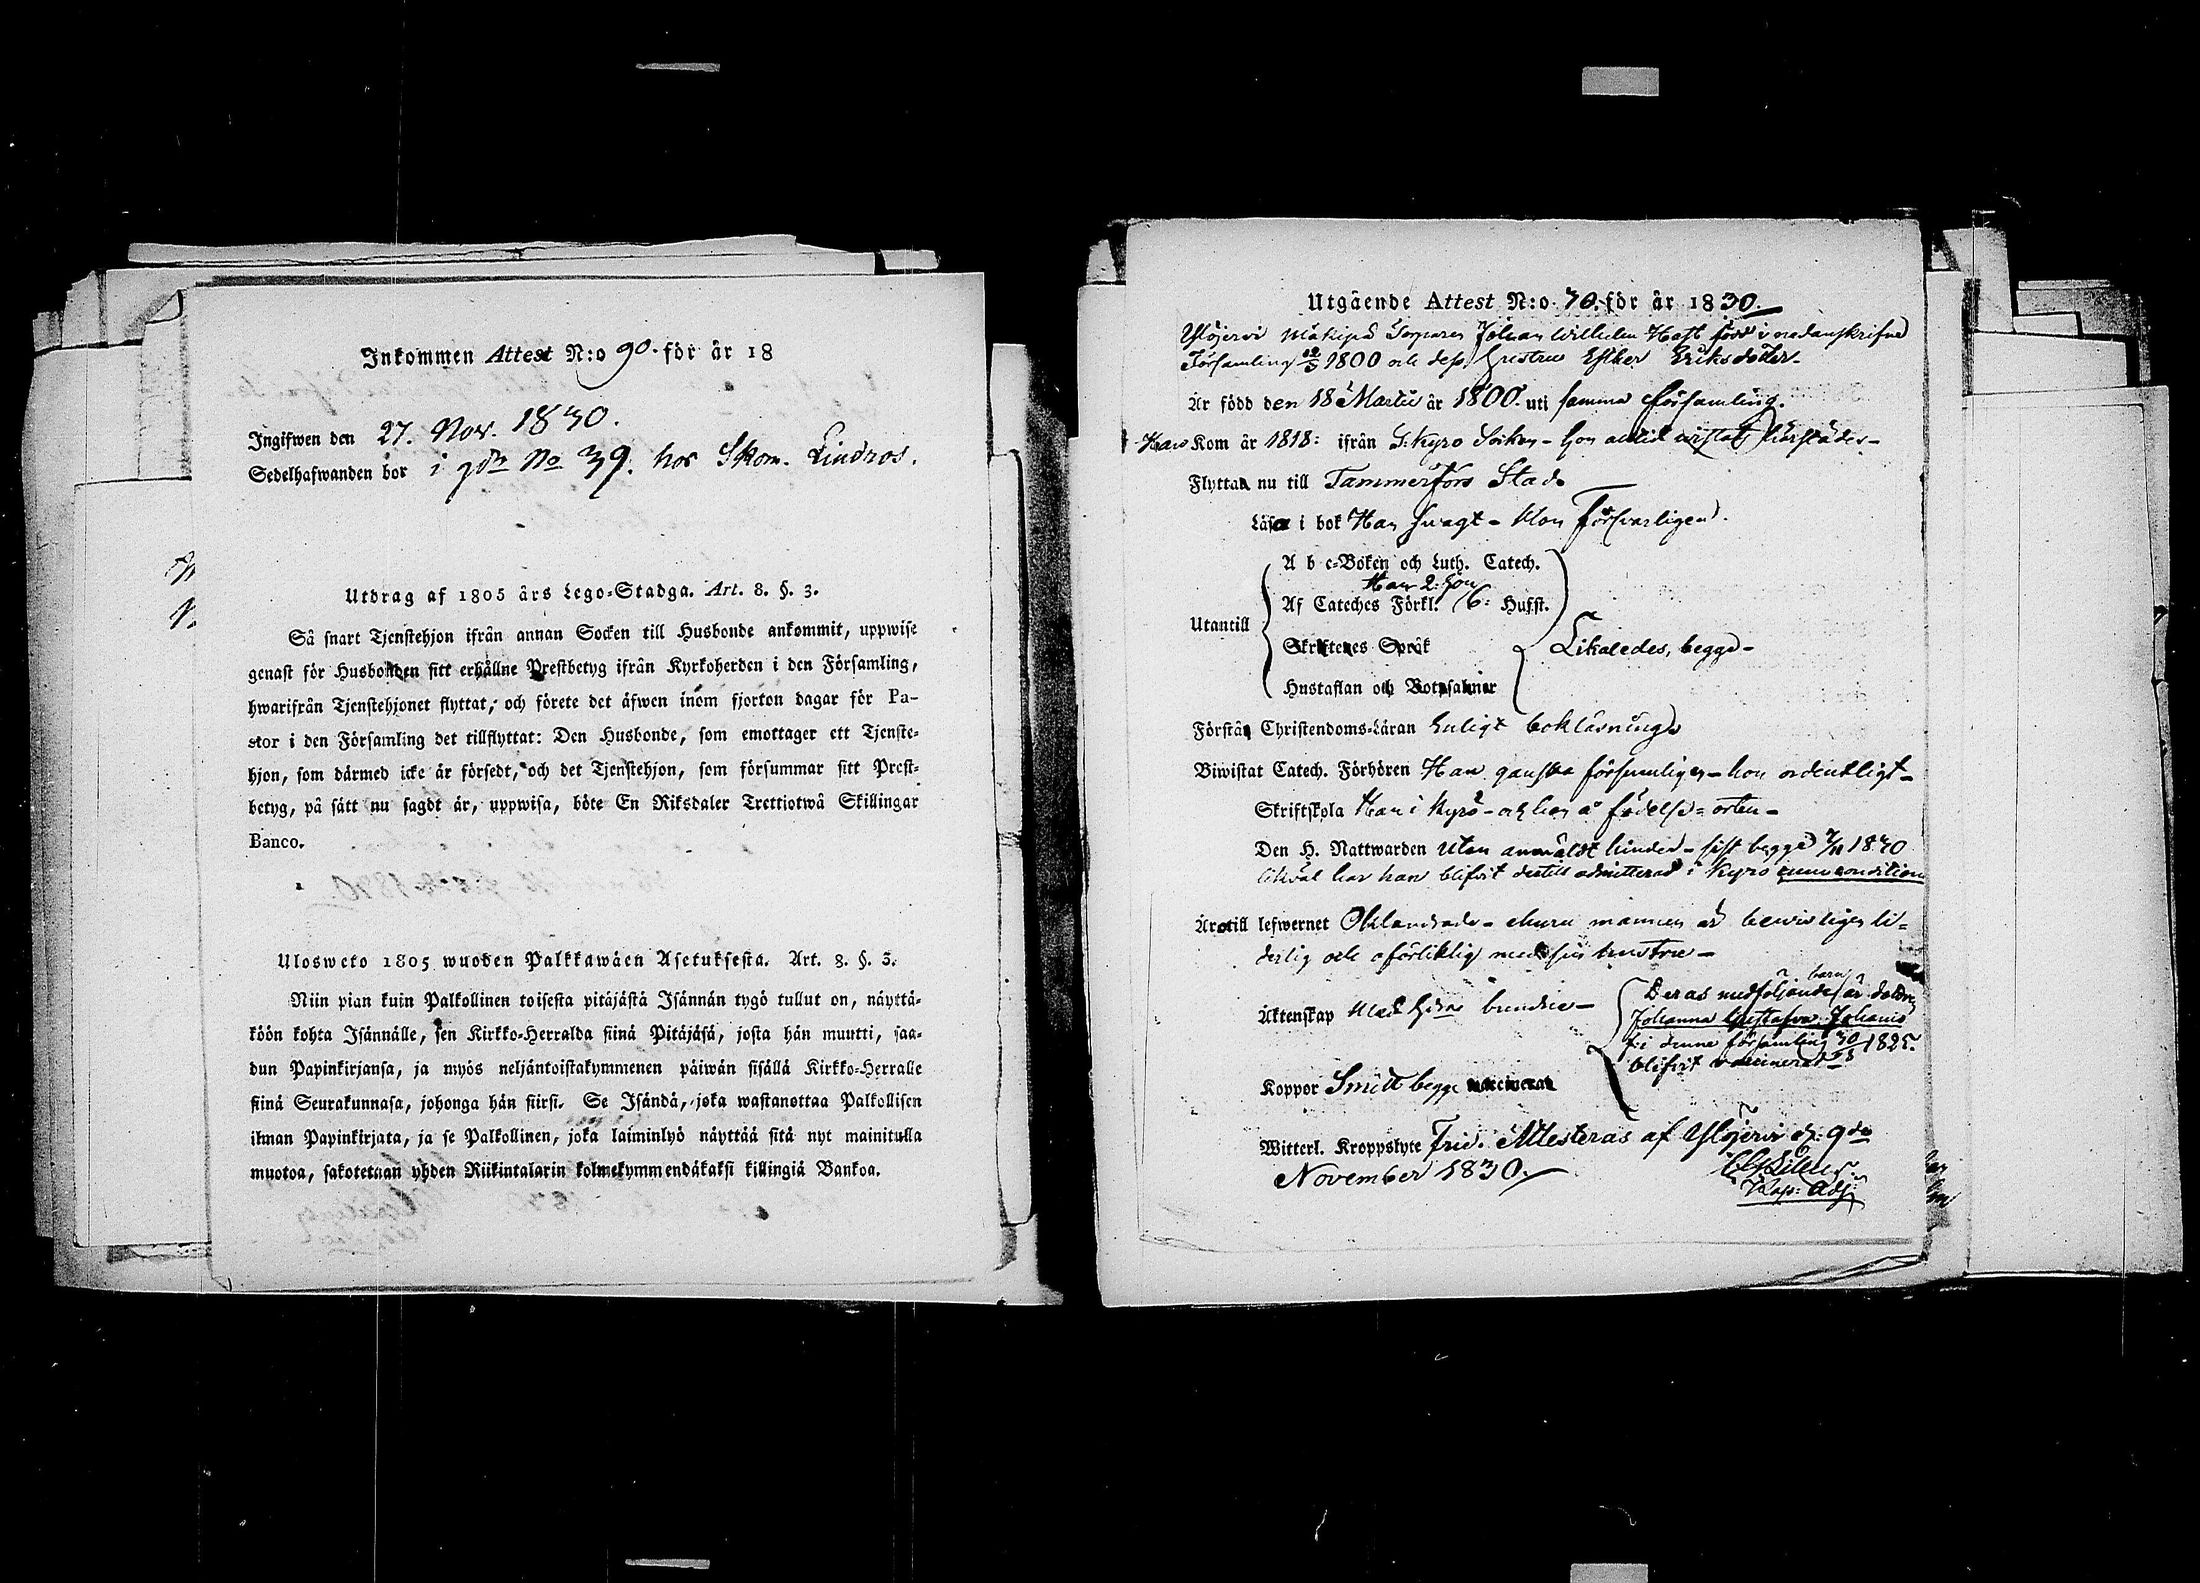 Inkommen Attest N:o 90. för år 18
Ingifwen den 27. Nov. 1830.
Sedelhafwanden bor i gdn No 39. hos Skom. Lindros.
Utdrag af 1805 års Lego-Stadga. Art. 8. §. 3.
Så snart Tjenstehjon ifrån annan Socken till Husbonde ankommit, uppwise
genast för Husbonden sitt erhållne Prestbetyg ifrån Kyrkoherden i den Församling,
hwarifrån Tjenstehjonet flyttat, och förete det äfwen inom fjorton dagar för Pa-
stor i den Församling det tillflyttat: Den Husbonde, som emottager ett Tjenste-
hjon, som därmed icke är försedt, och det Tjenstehjon, som försummar sitt Prest-
betyg, på sätt nu sagdt är, uppwisa, böte En Riksdaler Trettiotwå Skillingar
Banco.
Ulosweto 1805 wuoden Palkkawäen Asetuksesta. Art. 8. §. 3.
Niin pian kuin Palkollinen toisesta pitäjästä Isännän tygö tullut on, näyttä-
köön kohta Isännälle, sen Kirkko-Herralda siinä Pitäjäsä, josta hän muutti, saa-
dun Papinkirjansa, ja myös neljäntoistakymmenen päiwän sisällä Kirkko-Herralle
siinä Seurakunnasa, johonga hän siirsi. Se Isändä, joka wastanottaa Palkollisen
ilman Papinkirjata, ja se Palkollinen, joka laiminlyö näyttää sitä nyt mainitulla
muotoa, sakotetaan yhden Riikintalarin kolmekymmendäkaksi killingiä Bankoa.
Utgående Attest N:o 70. för år 1830.
Ylöjervi Mäkipä Torparen Johan Wilhelm Hast född i nedanskrifne
Församling 1800 och dess hustru Esther Eriksdotter
Är född den 18 Martii år 1800. uti samma församling.
Han Kom år 1818: ifrån S. Kyro Socken - hon alltid vistats härstädes -
Flytta nu till Tammerfors Stad.
Läsa i bok Han svagt - Hon försvarligen.
Utantill
A b c-Boken och Luth. Catech.
Han 2: hon
Af Cateches Förkl. 6: Hufst.
Skriftenes Språk
Hustaflan och Botpsalmer
Likaledes, begge -
Förstå Christendoms-Läran Enligt bokläsning
Biwistat Catech. Förhören Han ganska försumligen - hon ordentligt -
Skriftskola Han i Kyro - och hon å födelse-orten -
Den H. Nattwarden Utan anmäldt hinder - sist begge 7/11 1830
likväl har han blifvit dertill admitterad i Kyro
Äro till lefwernet Oklandrade - ehuru mannen är bevisligen li-
derlig och oförliklig med sin hustru -
Äktenskap Med hvarandra bundne -
Deras medföljande barn är dottren
Johanna Gustafva Johans
f: i denne församling 1825.
blifvit vaccinerad
Koppor Smitt begge
Witterl. Kroppslyte Frie. Attesteras af Ylöjervi d: 9de
November 1830.
Kap: Adj: